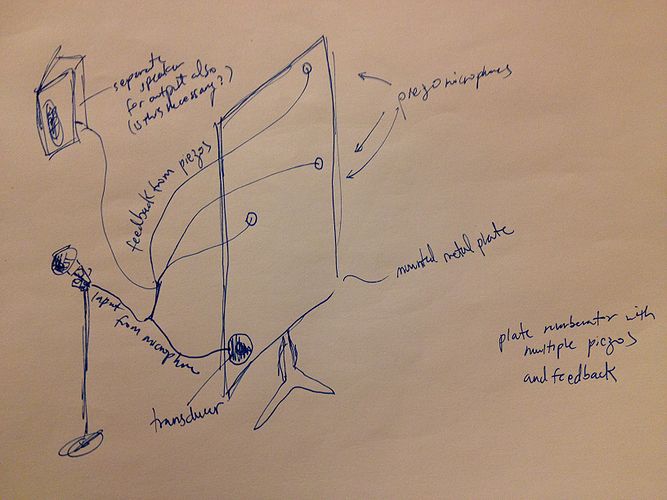 separate
speaker
for output also
(is this necessary?)
piezo microphones
feedback from piezos
mounted metal plate
input from microphone
transducer
plate reverberator with
multiple piezos
and feedback